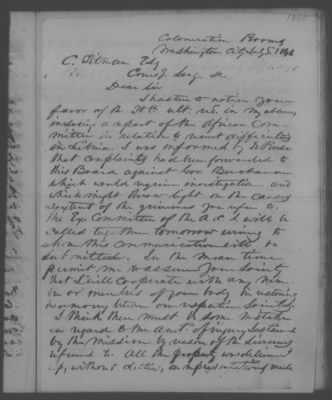 Colonization Rooms
Washington City July 5, 184
C. Pitman Esq
Corresg Secy &c.
Dear Sir
I hasten to notice your
favor of the 30th ult. rec. in my absence
inclosing a report of the African Com
mittee in relation to recent difficulties
in Liberia. I was informed by Dr
that complaints had been forwarded to
this Board against Gov Buchanan
which would require investigation and
which might throw light on the causes
& extent of the grievances you refer to.
The Ex Committee of the A.C.S. will be
called together tomorrow evening to
whom this communication will be
submitted. In the mean time
permit me to assure your Society
that I will cooperate with any
in or members of your body in restoring
harmony between our respective Societies
I think there must be some mistake
in regard to the amt. of injury sustained
by the Mission by reason of the
referred to. All the property was delivered
up, without duties, on representations made